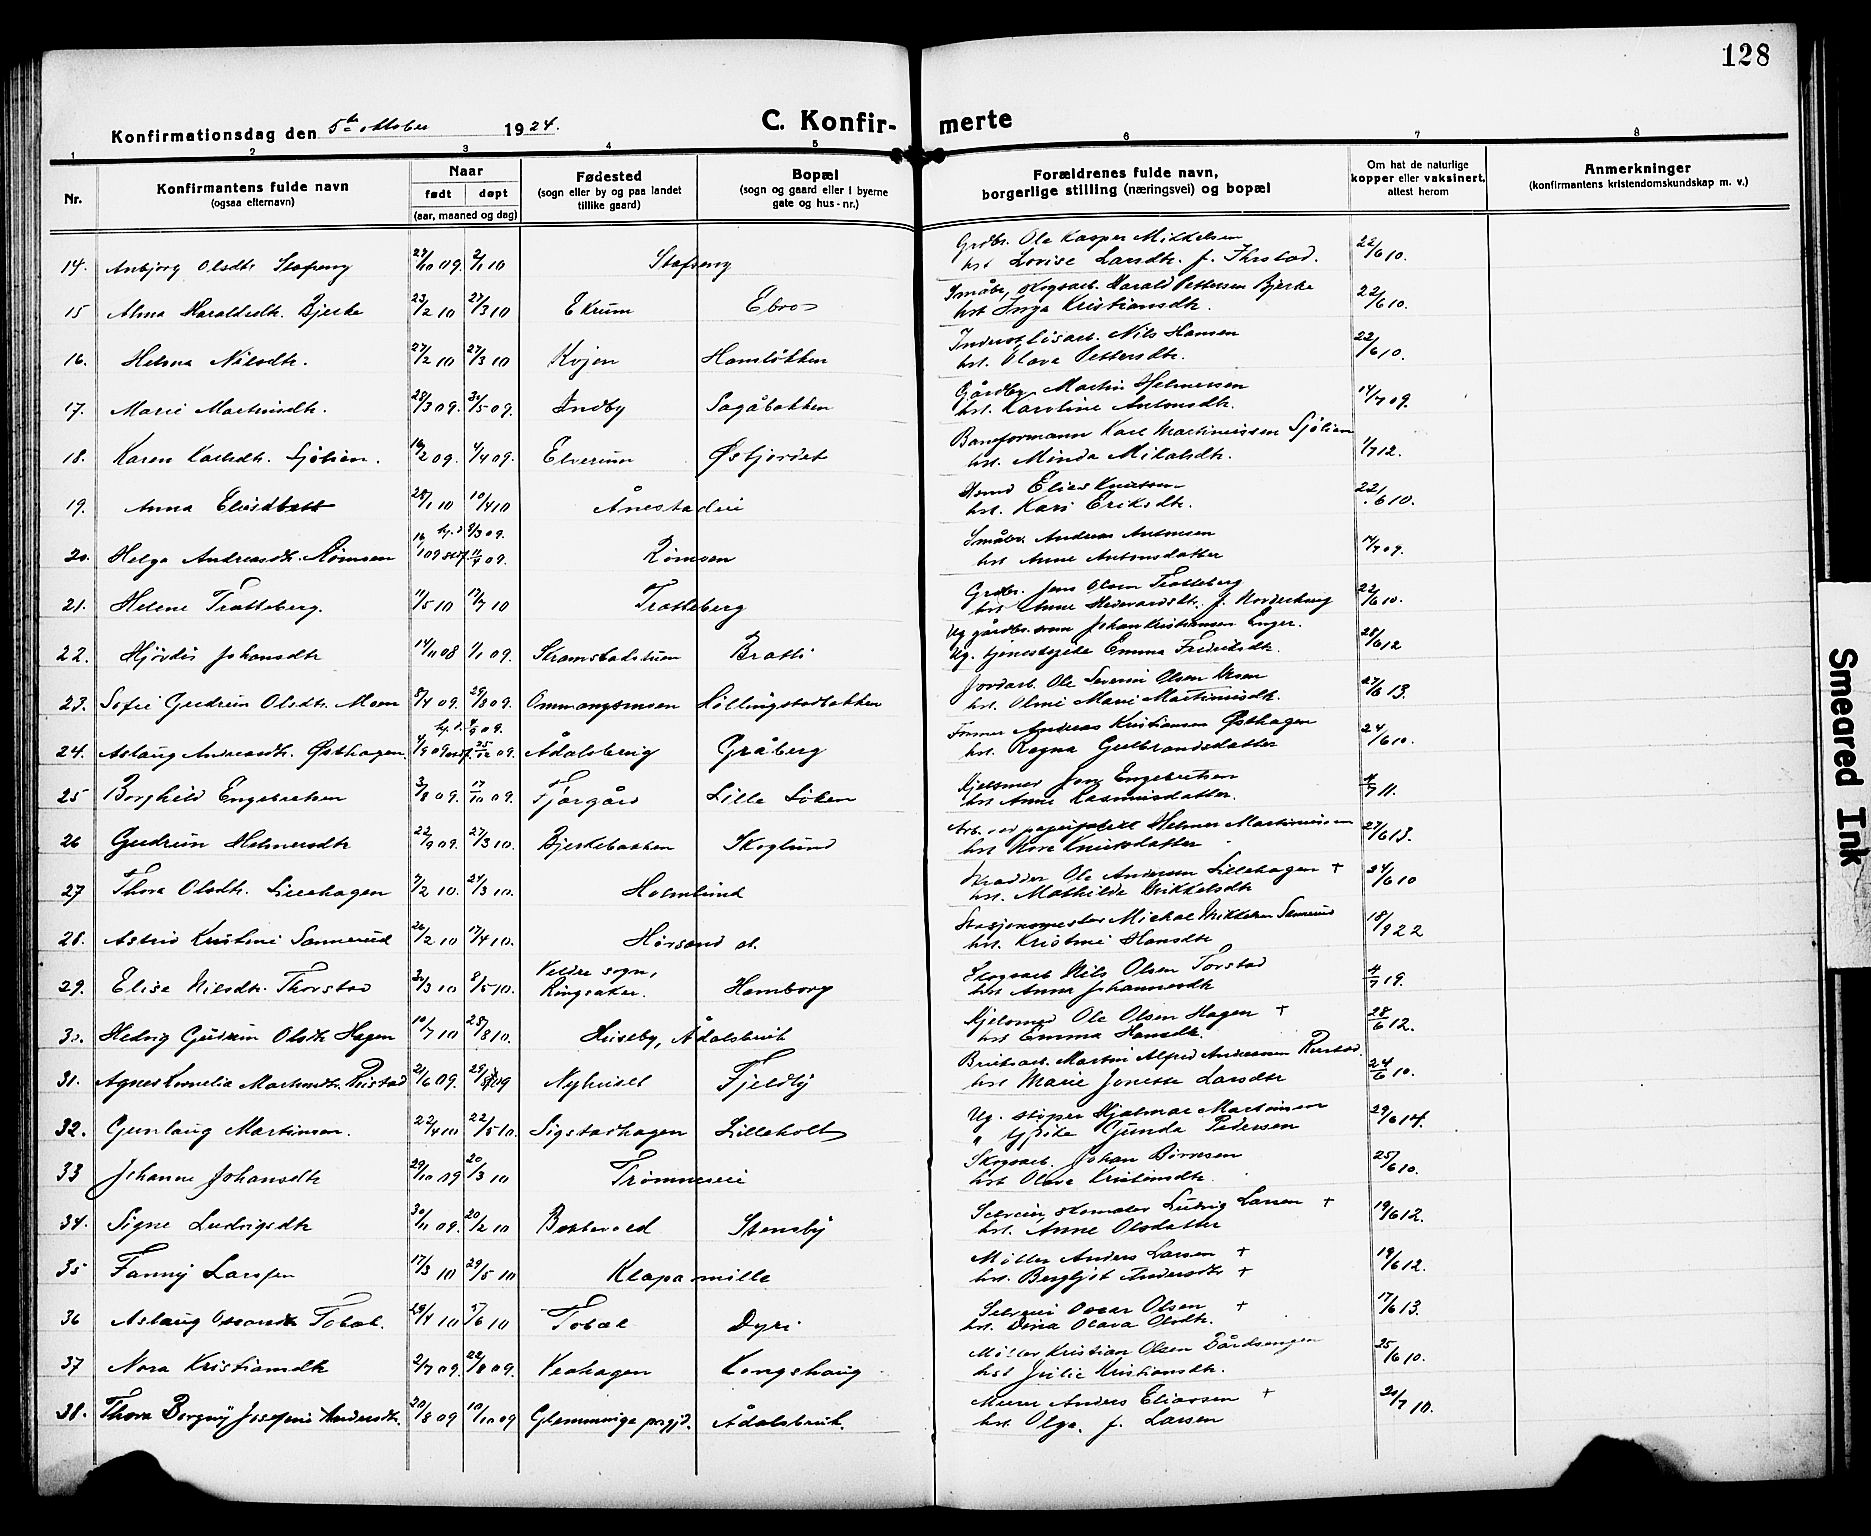 128
Konfirmationsdag den 5te oktober 1924.
C. Konfir- merte
1 2 3 4 5 6 7 8
Nr.
Konfirmantens fulde navn
(ogsaa efternavn)
Naar
født døpt
(aar, maaned og dag)
Fødested
(sogn eller by og paa landet
tillike gaard)
Bopæl
(sogn og gaard eller i byerne
gate og hus-nr.)
Forældrenes fulde navn,
borgerlige stilling (næringsvei) og bopæl
Om hat de naturlige
kopper eller vaksinert,
attest herom
Anmerkninger
(konfirmantens kristendomskundskap m. v.)
Grdbr. Ole Kasper Mikkelsen
14. Anbjørg Olsdtr. Stafseng 27/10 09. 2/1 10 Stafseng hst. Lovise Larsdtr. f. Ihrstad. 22/6 10.
Småbr., skogsarb. Harald Pettersen Bjerke
15 Alma Haraldsdtr. Bjerke 23/2 10 27/3 10 Ekrum Ebro hst. Inga Kristiansdtr. 22/6 10.
Nils Hansen
16. Helma Nilsdtr. 27/2 10 27/3 10 Kvjen Hamsløkken hst. Olava Pettersdtr. 22/6 10.
Gårdbr. Martin Helmersen
17. Marie Martinsdtr. 28/3 09. 31/5 09. Indby Sagåbakken hst. Karoline Antonsdtr. 14/7 09.
Baneformann Karl Martinussen Sjølien
18. Karen Karlsdtr. Sjølien. 16/2 09. 4/4 09. Elverum Østjordet hst. Minda Mikalsdtr. 1/7 12.
Elias Knutsen
19. Anna Eliasdatt 28/1 10 10/4 10 Ånestadeie hst. Kari Eriksdtr. 22/6 10.
hj.d. 9/3 09. Småbr. Andreas Antonsen
20. Helga Andreasdtr. Rømoen 16/1 09 stadf. 11/4 09. Rømoen hst. Anne Antonsdatter 14/7 09.
Grdbr. Jens Olsen Tratteberg
21. Helene Tratteberg. 11/5 10 17/7 10 Tratteberg hst. Anne Hedevardsdtr. f. Norderhaug 22/6 10.
Ug. gårdbr.sønn Johan Kristiansen Enger.
22. Hjørdis Johansdtr 14/11 08 1/1 09. Stramstadstuen Bratli Ug. tjenestepike Emma Fredriksdtr. 28/6 12
Jordarb. Ole Severin Olsen Moen
23. Sofie Gudrun Olsdtr. Moen 8/4 09. 29/8 09. Ommangsmoen Høllingstadbakken hst. Oline Marie Martinusdtr. 27/6 13.
hj.d. 4/9 09. Former Andreas Kristiansen Østhagen
24. Aslaug Andreasdtr. Østhagen. 4/9 09 stadf. 25/12 09. Ådalsberg Gråberg hst. Ragna Gulbrandsdatter 24/6 10.
Kjelsmed Jens Engebretsen
25 Borghild Engebretsen 3/8 09. 17/10 09. Fjærgård Lille Løken hst. Anne Rasmusdatter. 4/7 11.
Arb. ved papirfabrikk Helmer Martinussen
26 Gudrun Helmersdtr 22/9 09. 27/3 10. Bjerkebakken Skoglund hst. Nora Knutsdatter 27/6 13.
Skrædder Ole Andersen Lillehagen +
27 Thora Olsdtr. Lillehagen 7/2 10. 27/3 10. Holmlund hst. Mathilde Mikkelsdtr 24/6 10
Stasjonsmester Mickal Mikkelsen Sannerud
28. Astrid Kristine Sannerud 26/2 10 17/4 10. Hørsand st. hst. Kristine Hansdtr 18/9 22
Veldre sogn, Skogsarb Nils Olsen Torstad
29. Elise Nilsdtr. Thorstad 30/3 10 8/5 10. Ringsaker. Hamborg hst Anna Johannesdtr 4/7 19.
Kjelsmed Ole Olsen Hagen +
30. Hedvig Gudrun Olsdtr Hagen 10/7 10 28/8 10. Huseby, Ådalsbruk hst Emma Hansdtr. 28/6 12.
Bruksarb. Martin Alfred Andersen Rustad.
31. Agnes Kornelia Martinsdtr. Rustad 21/6 09. 29/8 09 Nyhuset Fjeldly hst Marie Jonette Larsdtr 24/6 10.
Ug. støper Hjalmar Martinsen
32. Gunlaug Martinsen. 22/4 10 22/5 10. Sigstadhagen Lilleholt " tjpike Gunda Pedersen 29/6 14.
Skogsarb. Johan Børresen
33 Johanne Johansdtr 29/10 09 20/3 10 Trømneseie hst Olava Kristiansdtr. 25/6 10.
Selveier, skomaker Ludvig Larsen +
34. Signe Ludvigsdtr 30/11 09. 20/2 10 Bakkevold Stensby hst. Anne Olsdatter 19/6 12.
Møller Anders Larsen +
35 Fanny Larssen 17/3 10 29/5 10 Klapa mølle hst. Bergljot Andersdtr + 19/6 12.
Selveier Oscar Olsen +
36 Aslaug Oscarsdtr Tobal. 29/4 10 5/6 10 Tobal Dyri hst. Dina Olava Olsdtr. 17/6 13.
Møller Kristian Olsen Bårdsengen
37 Nora Kristiansdtr 2/7 09. 22/8 09. Veahagen Kongshaug hst Julie Kristiansdtr. 25/6 10.
Murer Anders Eliassen +
38. Thora Borgny Josefine Andersdtr. 20/8 09 10/10 09 Glemminge prgjd. Ådalsbruk. hst. Olga. f. Larsen 20/7 10.
Smeared Ink